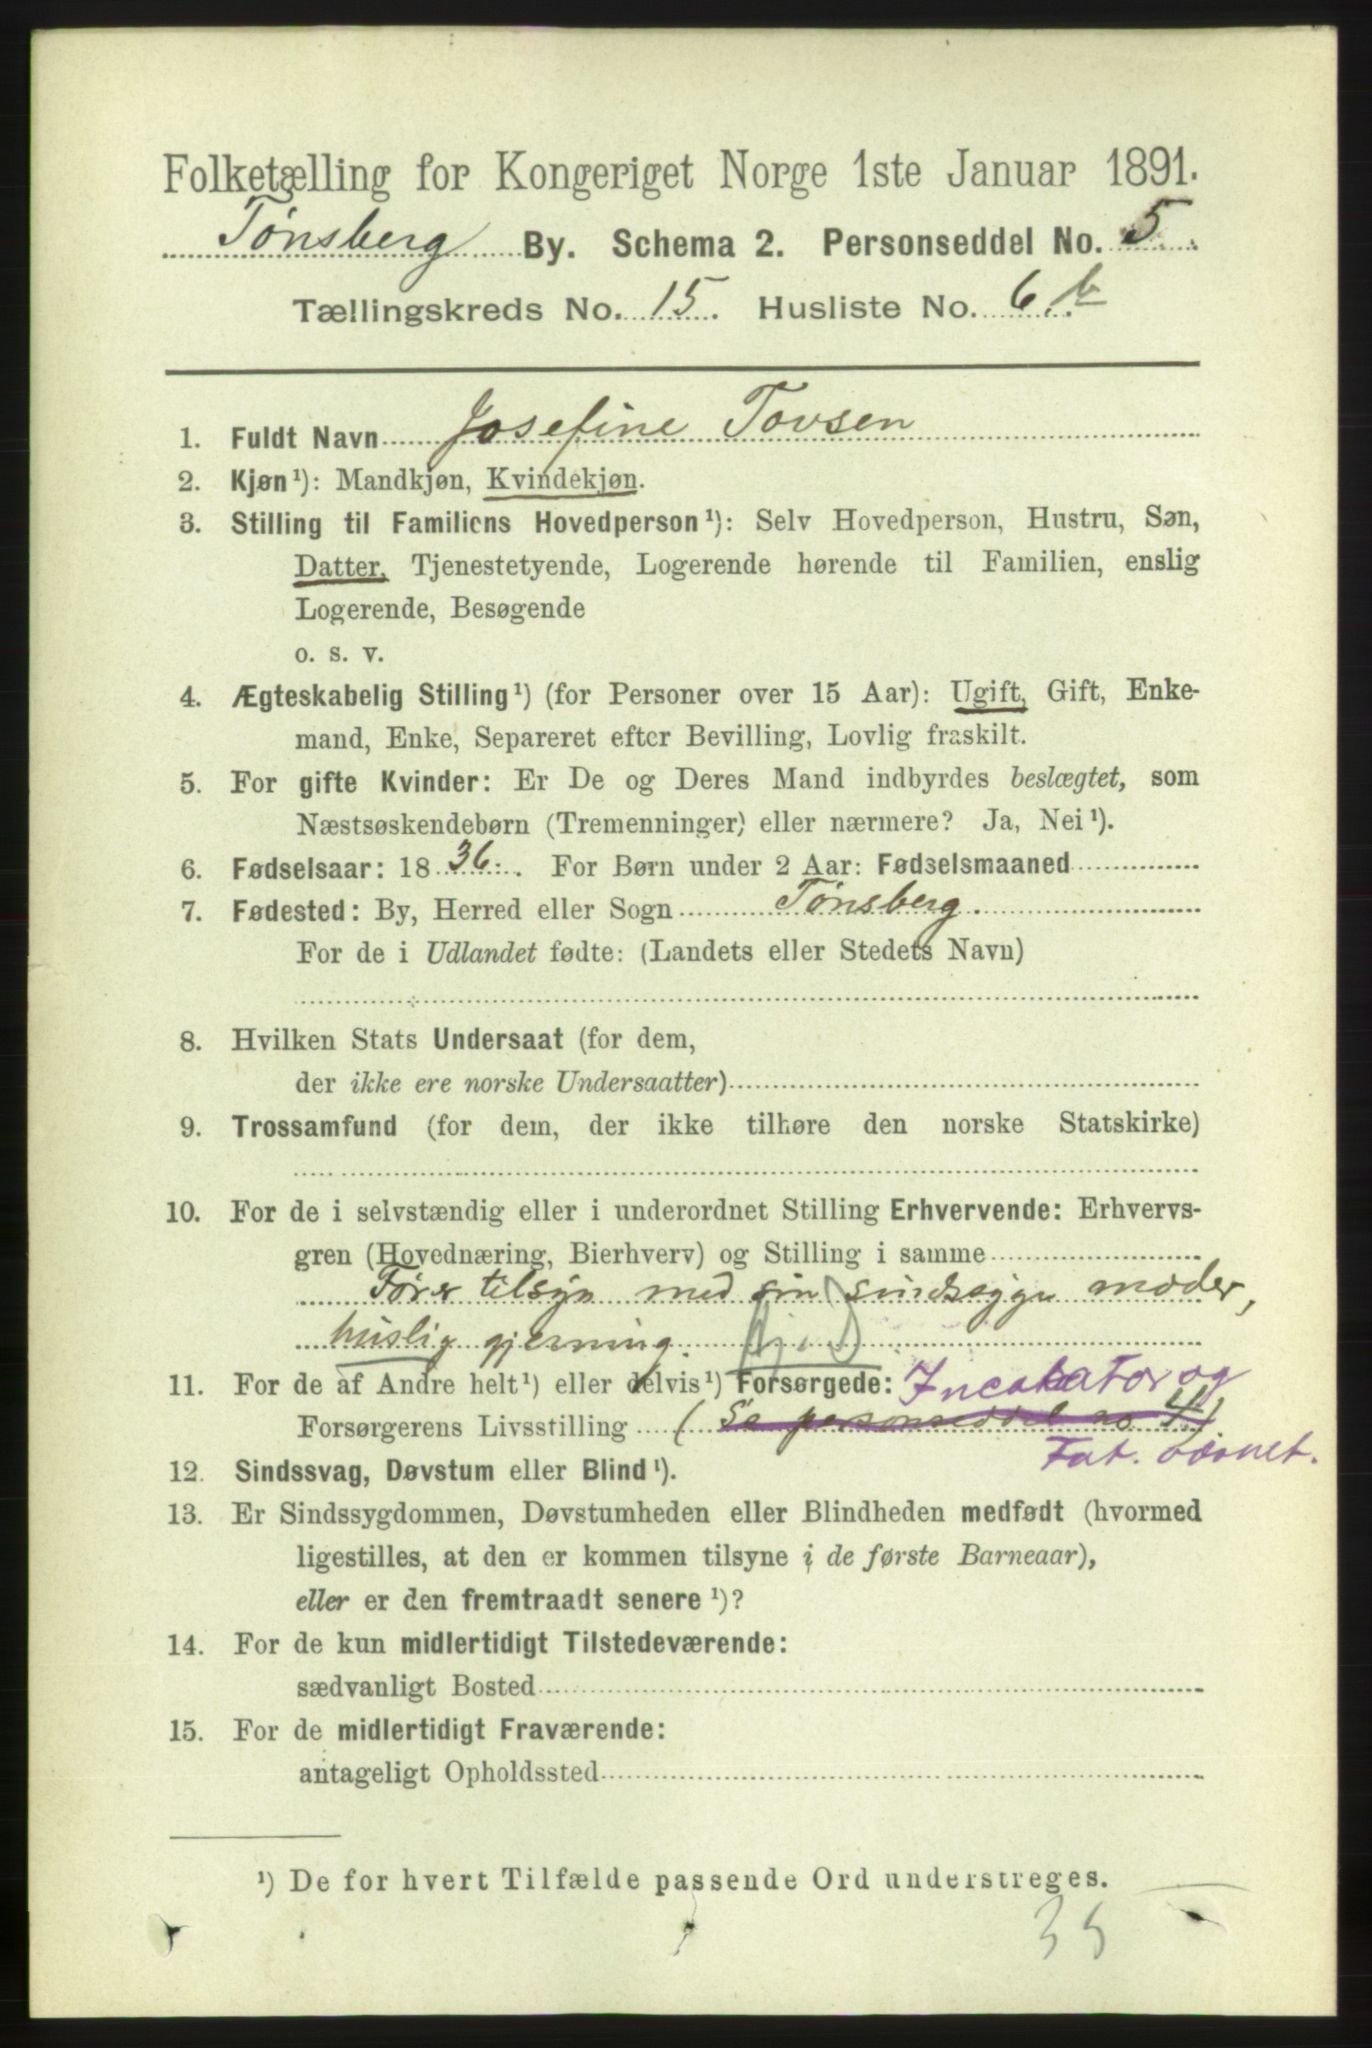 Folketælling for Kongeriget Norge 1ste Januar 1891.
Tønsberg By. Schema 2. Personseddel No. 5.
Tællingskreds No. 15. Husliste No. 6 b
1. Fuldt Navn Josefine Tovsen
2. Kjøn¹): Mandkjøn, Kvindekjøn.
3. Stilling til Familiens Hovedperson¹): Selv Hovedperson, Hustru, Søn,
Datter, Tjenestetyende, Logerende hørende til Familien, enslig
Logerende, Besøgende
o. s. v.
4. Ægteskabelig Stilling¹) (for Personer over 15 Aar): Ugift, Gift, Enke-
mand, Enke, Separeret efter Bevilling, Lovlig fraskilt.
5. For gifte Kvinder: Er De og Deres Mand indbyrdes beslægtet, som
Næstsøskendebørn (Tremenninger) eller nærmere? Ja, Nei¹).
6. Fødselsaar: 1836. For Børn under 2 Aar: Fødselsmaaned
7. Fødested: By, Herred eller Sogn Tønsberg.
For de i Udlandet fødte: (Landets eller Stedets Navn)
8. Hvilken Stats Undersaat (for dem,
der ikke ere norske Undersaatter)
9. Trossamfund (for dem, der ikke tilhøre den norske Statskirke)
10. For de i selvstændig eller i underordnet Stilling Erhvervende: Erhvervs-
gren (Hovednæring, Bierhverv) og Stilling i samme
Fører tilsyn med sin sindssyge moder,
huslig gjerning.
11. For de af Andre helt¹) eller delvis¹) Forsørgede: Incakator og
Forsørgerens Livsstilling (Se personseddel no 4)
Fat.
12. Sindssvag, Døvstum eller Blind¹).
13. Er Sindssygdommen, Døvstumheden eller Blindheden medfødt (hvormed
ligestilles, at den er kommen tilsyne i de første Barneaar),
eller er den fremtraadt senere¹)?
14. For de kun midlertidigt Tilstedeværende:
sædvanligt Bosted
15. For de midlertidigt Fraværende:
antageligt Opholdssted
¹) De for hvert Tilfælde passende Ord understreges.
35